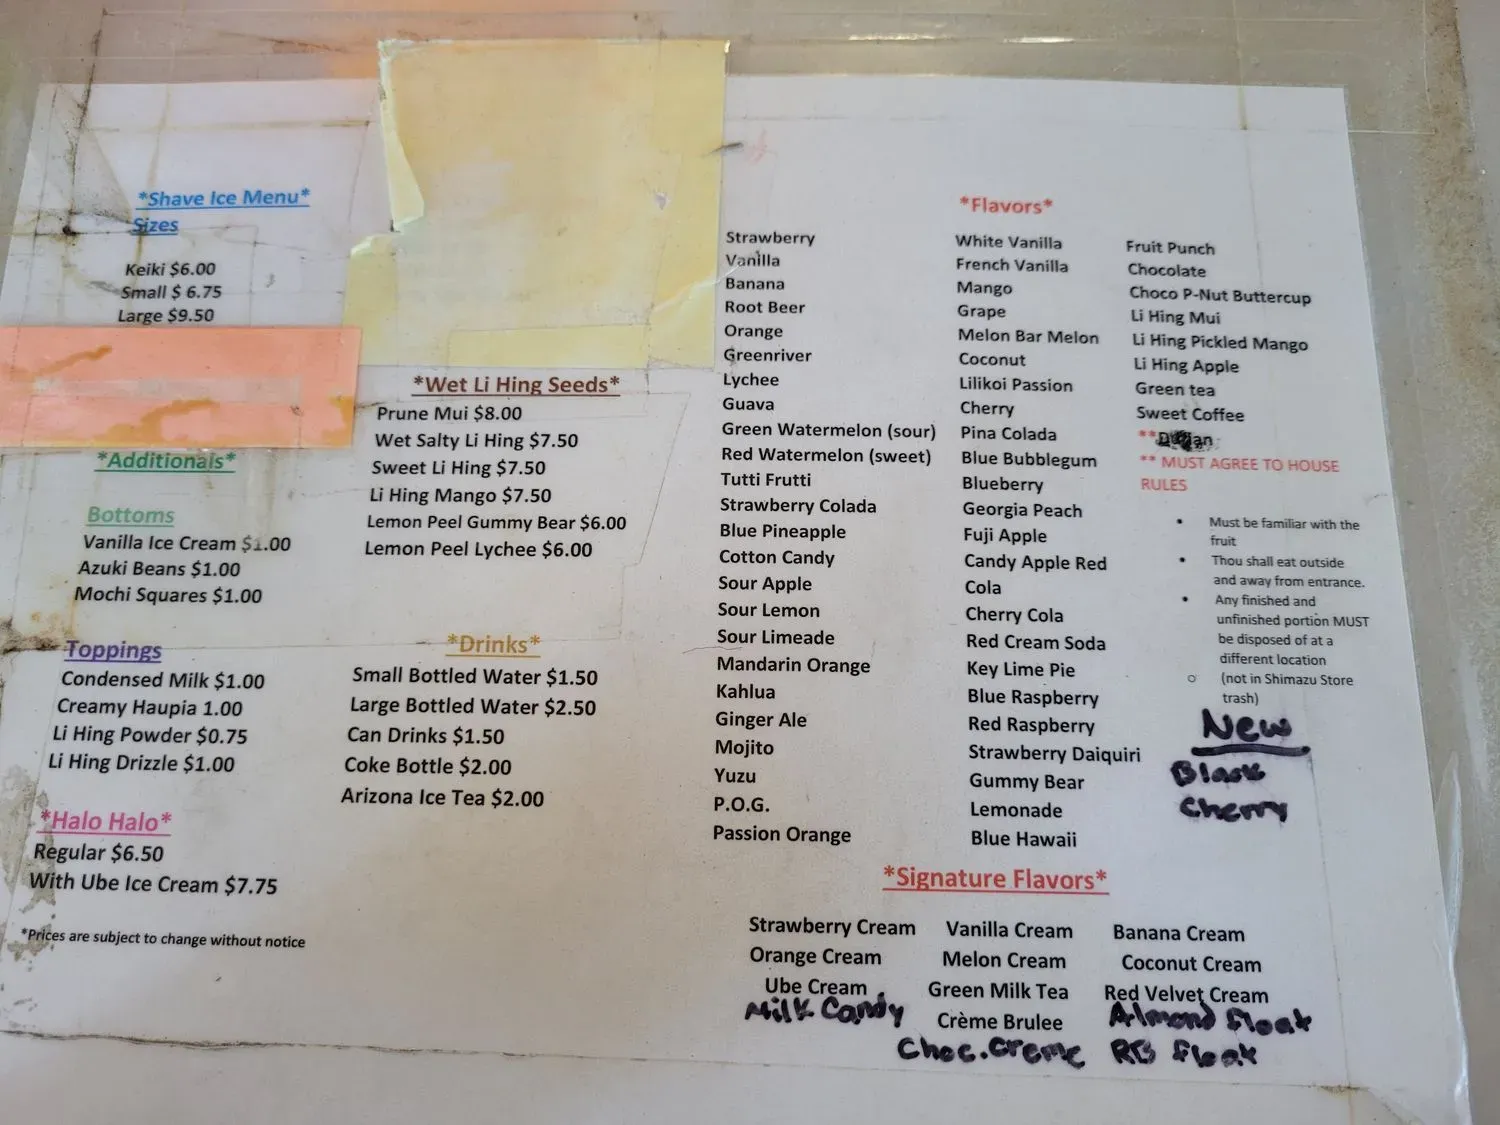 *Shave Ice Menu*
Sizes
Keiki $6.00
Small $ 6.75
Large $9.50
*Additionals*
Bottoms
Vanilla Ice Cream $1.00
Azuki Beans $1.00
Mochi Squares $1.00
Toppings
Condensed Milk $1.00
Creamy Haupia 1.00
Li Hing Powder $0.75
Li Hing Drizzle $1.00
*Halo Halo*
Regular $6.50
With Ube Ice Cream $7.75
*Prices are subject to change without notice
*Wet Li Hing Seeds*
Prune Mui $8.00
Wet Salty Li Hing $7.50
Sweet Li Hing $7.50
Li Hing Mango $7.50
Lemon Peel Gummy Bear $6.00
Lemon Peel Lychee $6.00
*Drinks*
Small Bottled Water $1.50
Large Bottled Water $2.50
Can Drinks $1.50
Coke Bottle $2.00
Arizona Ice Tea $2.00
*Flavors*
Strawberry
Vanilla
Banana
Root Beer
Orange
Greenriver
Lychee
Guava
Green Watermelon (sour)
Red Watermelon (sweet)
Tutti Frutti
Strawberry Colada
Blue Pineapple
Cotton Candy
Sour Apple
Sour Lemon
Sour Limeade
Mandarin Orange
Kahlua
Ginger Ale
Mojito
Yuzu
P.O.G.
Passion Orange
White Vanilla
French Vanilla
Mango
Grape
Melon Bar Melon
Coconut
Lilikoi Passion
Cherry
Pina Colada
Blue Bubblegum
Blueberry
Georgia Peach
Fuji Apple
Candy Apple Red
Cola
Cherry Cola
Red Cream Soda
Key Lime Pie
Blue Raspberry
Red Raspberry
Strawberry Daiquiri
Gummy Bear
Lemonade
Blue Hawaii
Fruit Punch
Chocolate
Choco P-Nut Buttercup
Li Hing Mui
Li Hing Pickled Mango
Li Hing Apple
Green tea
Sweet Coffee
**
** MUST AGREE TO HOUSE
RULES
• Must be familiar with the
fruit
• Thou shall eat outside
and away from entrance.
• Any finished and
unfinished portion MUST
be disposed of at a
different location
○ (not in Shimazu Store
trash)
New
Black
Cherry
*Signature Flavors*
Strawberry Cream Vanilla Cream Banana Cream
Orange Cream Melon Cream Coconut Cream
Ube Cream Green Milk Tea Red Velvet Cream
Milk Candy Crème Brulee Almond Float
Choc. Creme RB Float